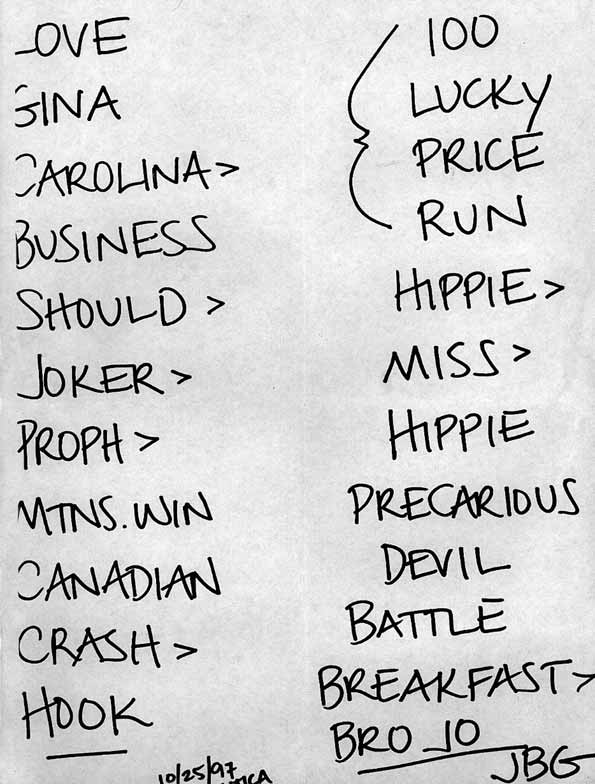 LOVE
GINA
CAROLINA >
BUSINESS
SHOULD >
JOKER >
PROPH >
MTNS. WIN
CANADIAN
CRASH >
HOOK
10/25/97
100
LUCKY
PRICE
RUN
HIPPIE >
MISS >
HIPPIE
PRECARIOUS
DEVIL
BATTLE
BREAKFAST >
BRO JO
JBG